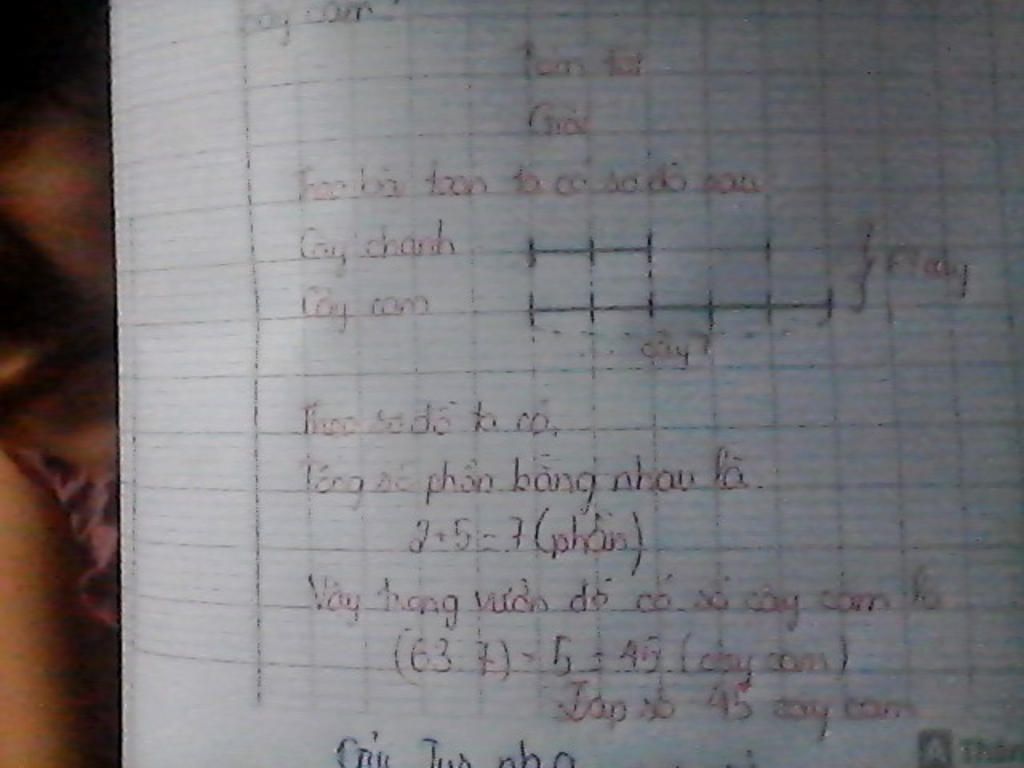 cây cam
Tóm tắt
Giải
Theo bài toán ta có sơ đồ sau
Cây chanh
cây
Cây cam
cây?
Theo sơ đồ ta có.
Tổng số phần bằng nhau là.
2+5=7 (phần)
Vậy trong vườn đó có số cây cam là
(63:7) × 5 = 45 (cây cam)
Đáp số 45 cây cam